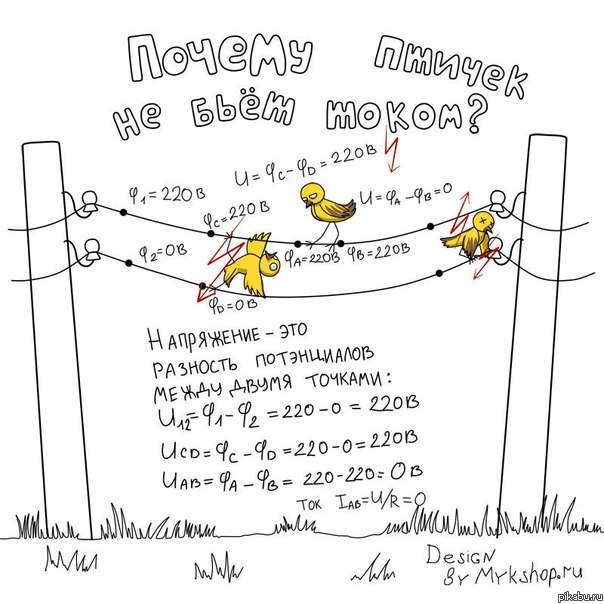 Почему птичек
не бьёт током?
U = φC - φD = 220 В
φ1 = 220 В
φC = 220 В
U = φA - φB = 0
φ2 = 0 В
φA = 220 В
φB = 220 В
φD = 0 В
Напряжение - это
разность потэнциалов
между двумя точками:
U12 = φ1 - φ2 = 220 - 0 = 220 В
UCD = φC - φD = 220 - 0 = 220 В
UAB = φA - φB = 220 - 220 = 0 В
ток IAB = U/R = 0
Design
By Mrkshop.ru
pikabu.ru